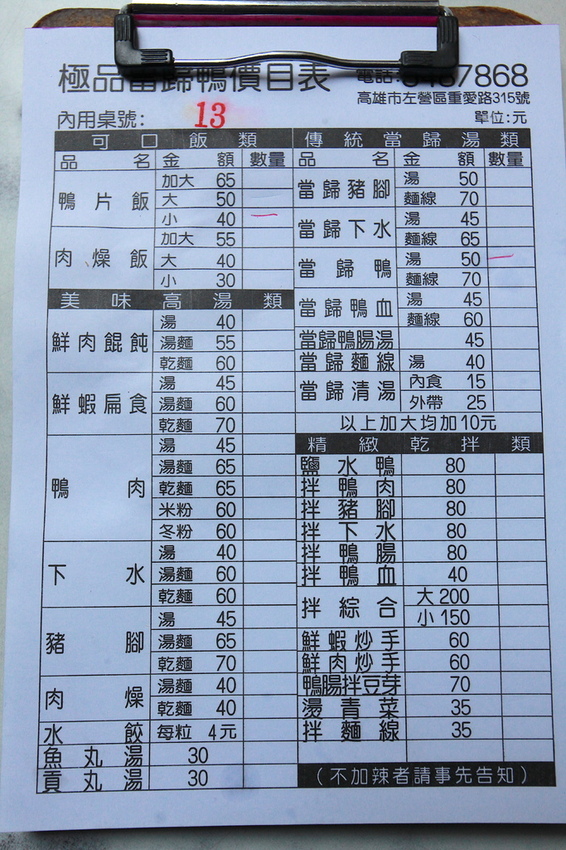 極品當歸鴨價目表
7868
高雄市左營區重愛路315號
內用桌號: 13 單位:元
可口飯類
品名 金額 數量
鴨片飯 加大 65
大 50
小 40 一
肉燥飯 加大 55
大 40
小 30
美味高湯類
鮮肉餛飩 湯 40
湯麵 55
乾麵 60
鮮蝦扁食 湯 45
湯麵 60
乾麵 70
鴨肉 湯 45
湯麵 65
乾麵 65
米粉 60
冬粉 60
下水 湯 40
湯麵 60
乾麵 60
豬腳 湯 45
湯麵 65
乾麵 70
肉燥 湯麵 40
乾麵 40
水餃 每粒 4元
魚丸湯 30
貢丸湯 30
傳統當歸湯類
品名 金額 數量
當歸豬腳 湯 50
麵線 70
當歸下水 湯 45
麵線 65
當歸鴨 湯 50 一
麵線 70
當歸鴨血 湯 45
麵線 60
當歸鴨腸湯 45
當歸麵線 湯 40
當歸清湯 內食 15
外帶 25
以上加大均加10元
精緻乾拌類
鹽水鴨 80
拌鴨肉 80
拌豬腳 80
拌下水 80
拌鴨腸 80
拌鴨血 40
拌綜合 大 200
小 150
鮮蝦炒手 60
鮮肉炒手 60
鴨腸拌豆芽 70
燙青菜 35
拌麵線 35
(不加辣者請事先告知)